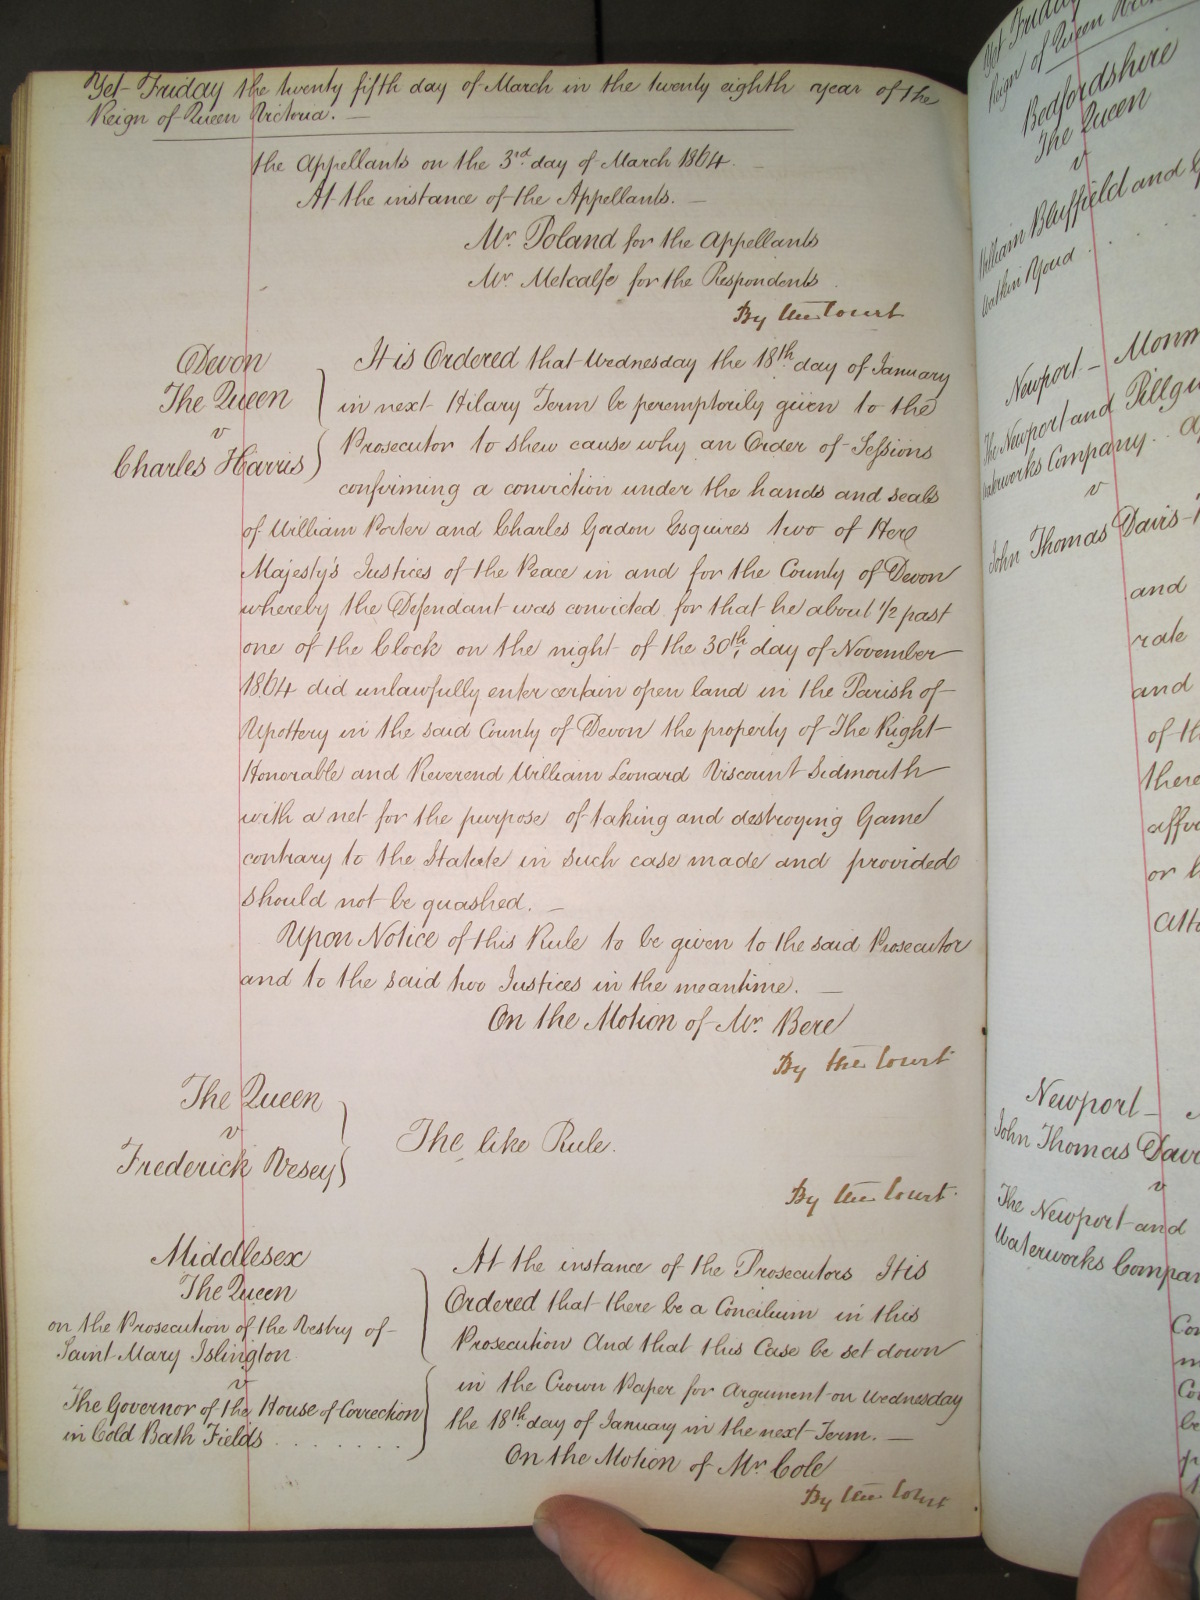 Yet Friday the twenty fifth day of March in the twenty eighth year of the
Reign of Queen Victoria. —
the Appellants on the 3rd day of March 1864. —
At the instance of the Appellants. —
Mr. Poland for the Appellants
Mr. Metcalfe for the Respondents
By the Court
Devon
The Queen
v
Charles Harris
It is Ordered that Wednesday the 18th day of January
in next Hilary Term be peremptorily given to the
Prosecutor to shew cause why an Order of Sessions
confirming a conviction under the hands and seals
of William Porter and Charles Gordon Esquires two of Her
Majesty's Justices of the Peace in and for the County of Devon
whereby the Defendant was convicted for that he about 1/2 past
one of the Clock on the night of the 30th day of November
1864 did unlawfully enter certain open land in the Parish of
Upottery in the said County of Devon the property of The Right
Honorable and Reverend William Leonard Viscount Sidmouth
with a net for the purpose of taking and destroying Game
contrary to the Statute in such case made and provided
should not be quashed. —
Upon Notice of this Rule to be given to the said Prosecutor
and to the said two Justices in the meantime. —
On the Motion of Mr. Bere
By the Court
The Queen
v
Frederick Vesey
The like Rule.
By the Court.
Middlesex
The Queen
on the Prosecution of the Vestry of
Saint Mary Islington
v
The Governor of the House of Correction
in Cold Bath Fields . . . . . . .
At the instance of the Prosecutors It is
Ordered that there be a Concilium in this
Prosecution And that this Case be set down
in the Crown Paper for Argument on Wednesday
the 18th day of January in the next Term. —
On the Motion of Mr Cole
By the Court
Yet Friday
Reign of Queen
Bedfordshire
The Queen
v
William Bluffield and
Newport — Monm
The Newport and Pillgw
Waterworks Company . .
v
John Thomas Davis
and
rate
and
of th
there
affor
or
Atto
Newport —
John Thomas Davi
v
The Newport and
Waterworks Compan